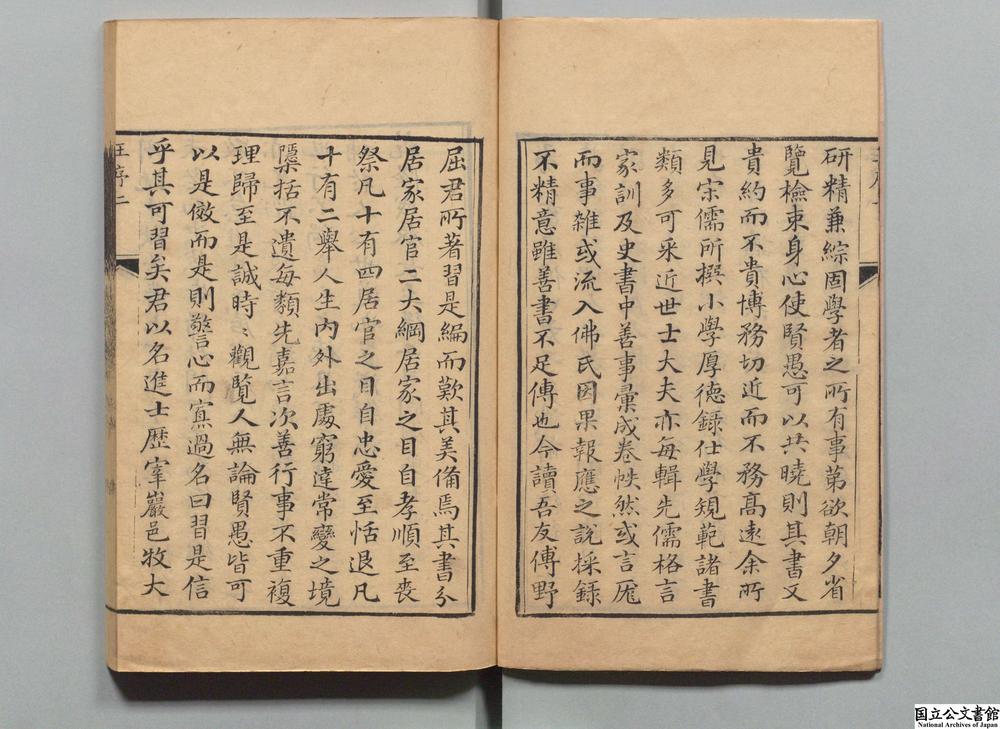 研精兼綜固學者之所有事第欲朝夕省
覽檢束身心使賢愚可以共曉則其書又
貴約而不貴博務切近而不務髙遠余所
見宋儒所撰小學厚德錄仕學規範諸書
類多可采近世士大夫亦每輯先儒格言
家訓及史書中善事彙成卷帙然或言厖
而事雜或流入佛氏因果報應之説採録
不精意雖善書不足傳也今讀吾友傅野
屈君所著習是編而歎其美俻焉其書分
居家居官二大綱居家之目自孝順至喪
祭凡十有四居官之目自忠愛至恬退凡
十有二舉人生内外出處窮達常變之境
檃括不遺每類先嘉言次善行事不重複
理歸至是誠時〻觀覧人無論賢愚皆可
以是儆而是則警心而寡過名曰習是信
乎其可習矣君以名進士歷宰巖邑牧大
王序二
国立公文書館
National Archives of Japan